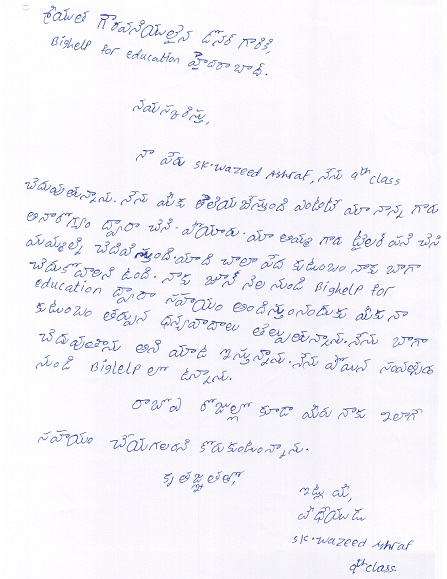 శ్రీయుత గౌరవనీయులైన డోనర్ గారికి,
Bighelp for education హైదరాబాద్.
నమస్కరిస్తు,
నా పేరు SK.Wazeed Ashraf, నేను 9th class
చదువుతున్నాను. నేను మీకు తెలియజేస్తుంది ఏంటంటే మా నాన్న గారు
అనారోగ్యం ద్వారా చనిపోయారు. మా అమ్మ గారు టైలర్ పని చేసి
మమ్మల్ని చదివిస్తుంది. మాది చాలా పేద కుటుంబం నాకు బాగా
చదుకోవాలని ఉంది. నాకు జూన్ నెల నుండి Bighelp for
education ద్వారా సహాయం అందిస్తునందుకు మీకు నా
కుటుంబం తరుపున ధన్యవాదాలు తెల్పుతున్నాను. నేను బాగా
చదువుతాను అని మాట ఇస్తున్నాను. నేను పోయిన సంవత్సరం
నుండి Bighelp లో ఉన్నాను.
రాబోవు రోజుల్లో కూడా మీరు నాకు ఇలాగే
సహాయం చేయగలరని కోరుకుంటున్నాను.
కృతజ్ఞతతో,
ఇట్లు మీ,
విధేయుడు
SK.Wazeed Ashraf
9th class